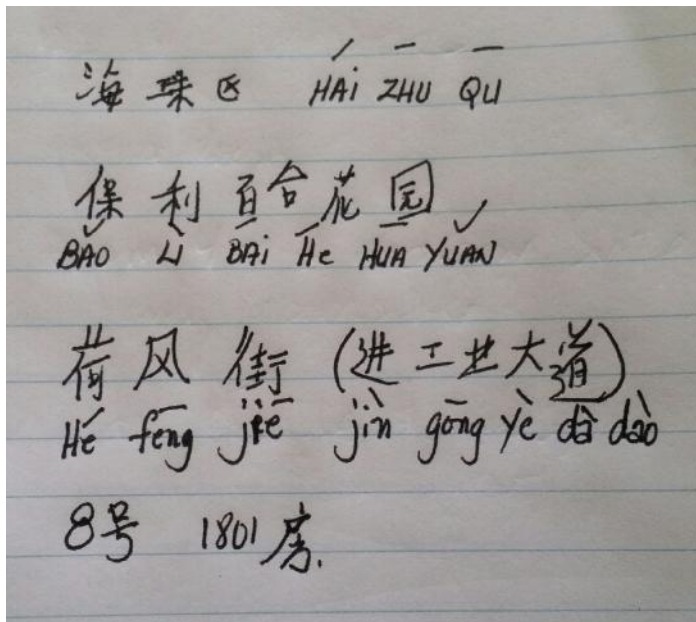 海珠区 HAi ZHU QU
保利百合花园
BAO Li BAi He HUA YUAN
荷风街 (进工业大道)
Hé fēng jiē jìn gōng yè dà dào
8号 1801房.